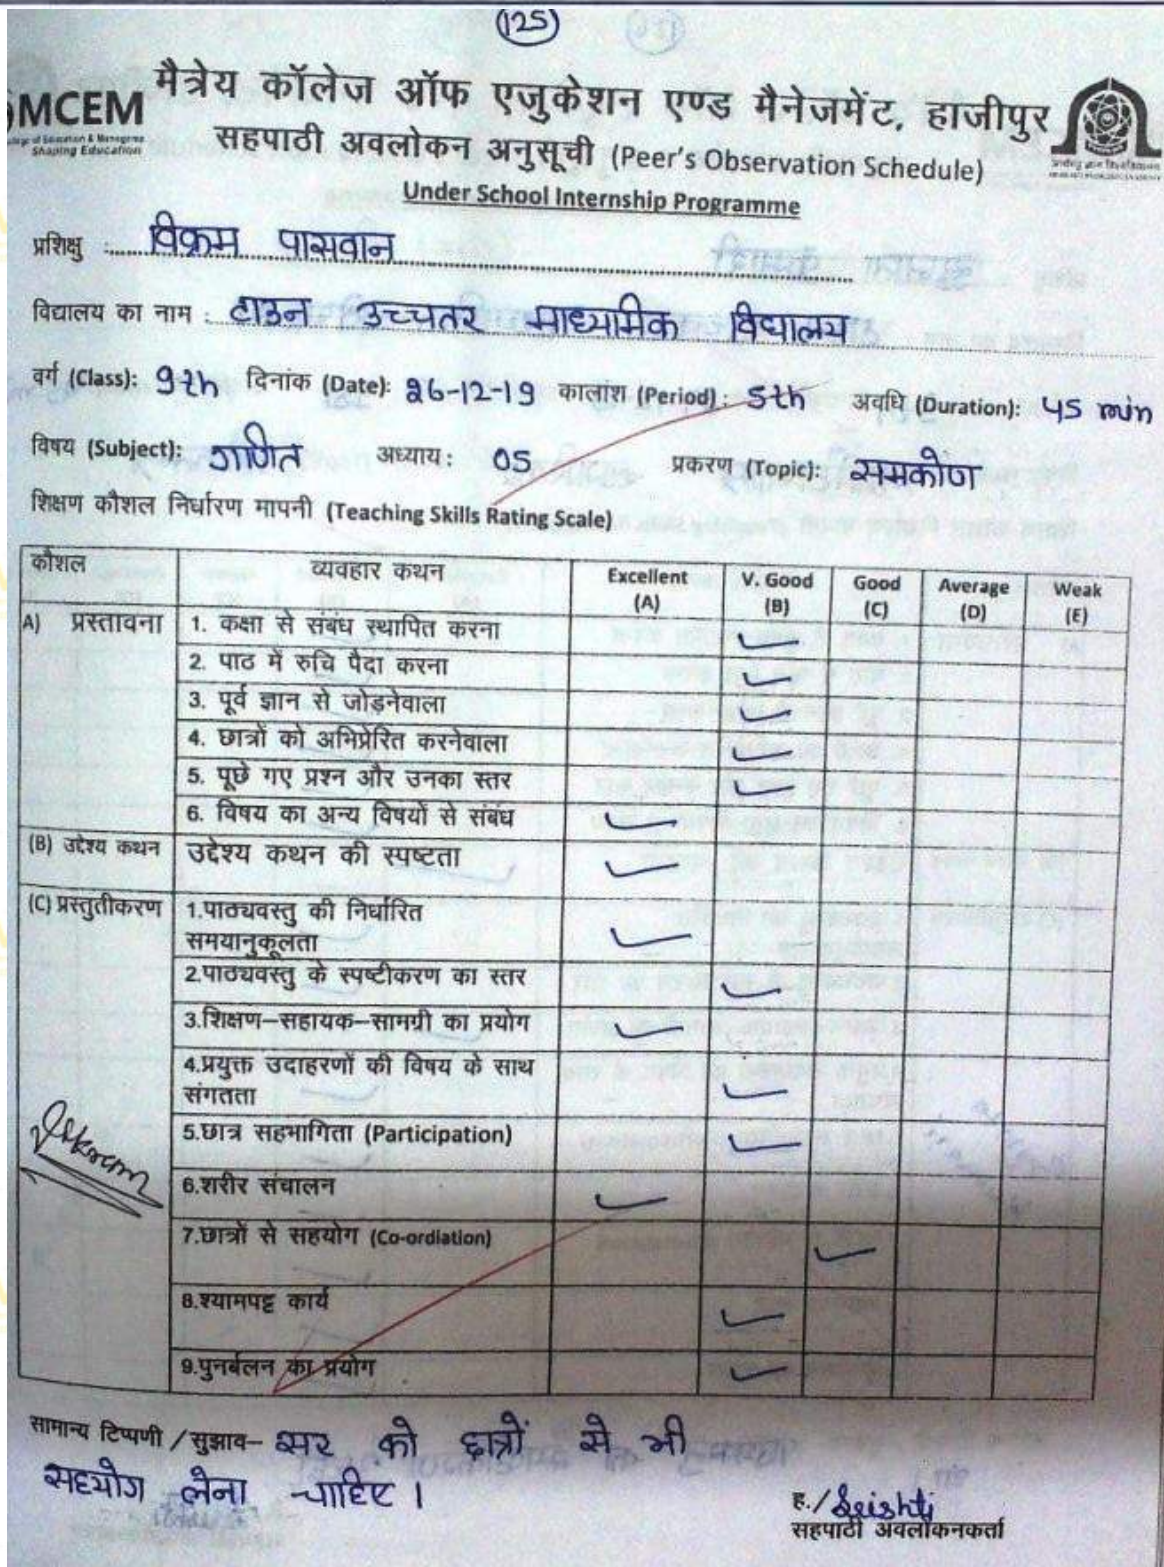 125
MCEM
Shaping Education
मैत्रेय कॉलेज ऑफ एजुकेशन एण्ड मैनेजमेंट, हाजीपुर
सहपाठी अवलोकन अनुसूची (Peer's Observation Schedule)
Under School Internship Programme
प्रशिक्षु : विक्रम पासवान
विद्यालय का नाम : टाउन उच्चतर माध्यमिक विद्यालय
वर्ग (Class): 9th दिनांक (Date): 26-12-19 कालांश (Period) : 5th अवधि (Duration): 45 min
विषय (Subject): गणित अध्याय : 05 प्रकरण (Topic): समकोण
शिक्षण कौशल निर्धारण मापनी (Teaching Skills Rating Scale)
कौशल व्यवहार कथन Excellent (A) V. Good (B) Good (C) Average (D) Weak (E)
A) प्रस्तावना 1. कक्षा से संबंध स्थापित करना ✓
2. पाठ में रुचि पैदा करना ✓
3. पूर्व ज्ञान से जोड़नेवाला ✓
4. छात्रों को अभिप्रेरित करनेवाला ✓
5. पूछे गए प्रश्न और उनका स्तर ✓
6. विषय का अन्य विषयों से संबंध ✓
(B) उद्देश्य कथन उद्देश्य कथन की स्पष्टता ✓
(C) प्रस्तुतीकरण 1.पाठ्यवस्तु की निर्धारित
समयानुकूलता ✓
2.पाठ्यवस्तु के स्पष्टीकरण का स्तर ✓
3.शिक्षण–सहायक–सामग्री का प्रयोग ✓
4.प्रयुक्त उदाहरणों की विषय के साथ
संगतता ✓
5.छात्र सहभागिता (Participation) ✓
Vikram
6.शरीर संचालन ✓
7.छात्रों से सहयोग (Co-ordiation) ✓
8.श्यामपट्ट कार्य ✓
9.पुनर्बलन का प्रयोग ✓
सामान्य टिप्पणी / सुझाव– सर को छात्रों से भी
सहयोग लेना चाहिए ।
ह./ Srishti
सहपाठी अवलोकनकर्ता